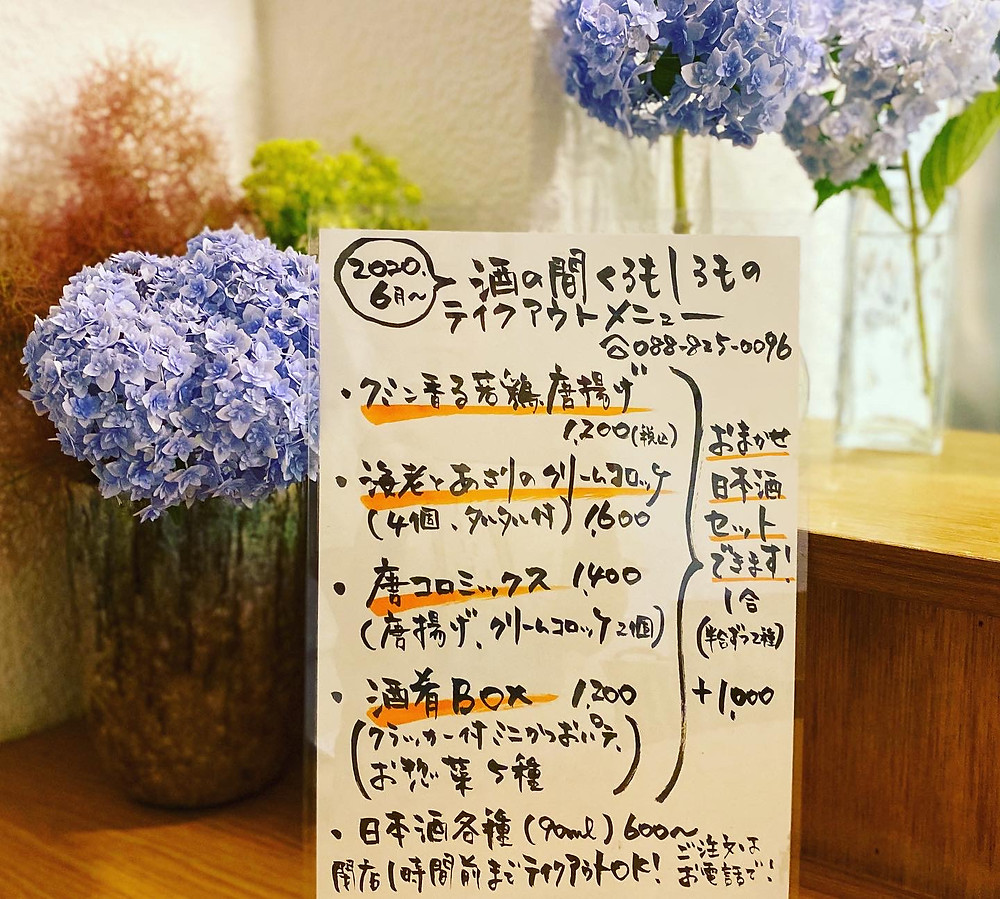 2020.
6月～
酒の間 くろもしろもの
テイクアウトメニュー
☎088-825-0096
・クミン香る若鶏唐揚げ
1,200(税込)
・海老とあさりのクリームコロッケ
(4個、タルタル付) 1,600
・唐コロミックス 1,400
(唐揚げ、クリームコロッケ2個)
・酒肴BOX 1,200
(クラッカー付ミニかつおパテ、
お惣菜5種)
おまかせ
日本酒
セット
できます!
1合
(半合ずつ2種)
+1,000
・日本酒各種(90ml)600～
閉店1時間前までテイクアウトOK!
ご注文は
お電話で!